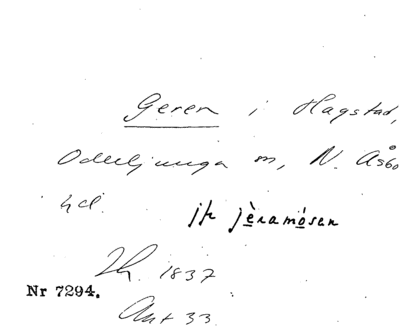 Geren i Hagstad,
Oderljunga sn, N. Åsbo
hd.
jfr jèramósen
Th. 1837
Nr 7294.
Ant 33